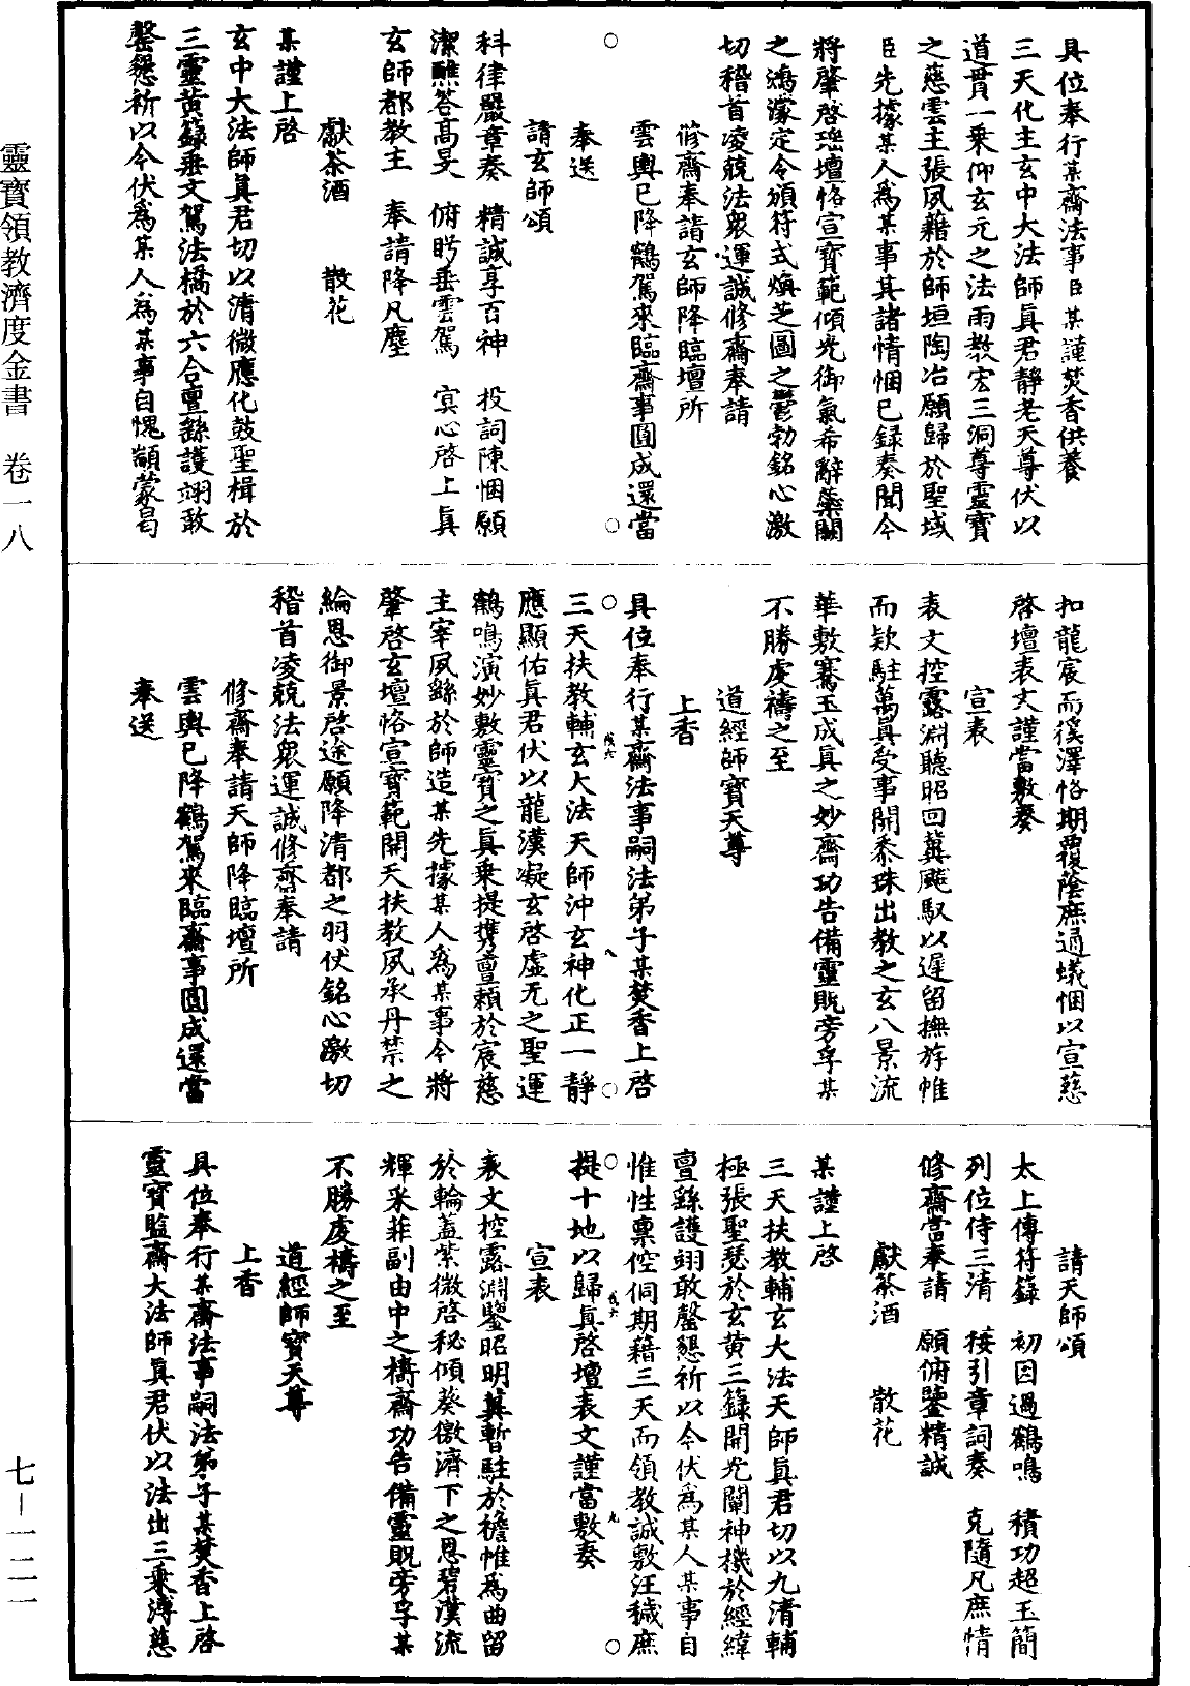 靈寶領教濟度金書　卷一八
七－一二一
具位奉行某齋法事臣某謹焚香供養
三天化主玄中大法師眞君靜老天尊伏以
道貫一乘仰玄元之法雨教宏三洞尊靈寶
之慈雲主張夙藉於師垣陶冶願歸於聖域
臣先據某人爲某事其諸情悃已錄奏聞今
將肇啓瑤壇恪宣寶範傾光御氣希辭蘂闕
之鴻濛定令頒符式煥芝圖之鬱勃銘心激
切稽首凌兢法衆運誠修齋奉請
修齋奉請玄師降臨壇所
雲輿已降鶴駕來臨齋事圓成還當
奉送
請玄師頌
科律嚴章奏　精誠享百神　投詞陳悃願
潔醮荅高旻　俯盻垂雲駕　寅心啓上眞
玄師都教主　奉請降凡塵
獻茶酒　散花
某謹上啓
玄中大法師眞君切以清微應化鼓聖楫於
三靈黃籙垂文駕法橋於六合亶繇護翊敢
罄懇祈以今伏爲某人爲某事自愧顓蒙曷
扣龍宸而徯澤恪期覆蔭庶通蟻悃以宣慈
啓壇表文謹當敷奏
宣表
表文控露淵聽昭回冀飈馭以遲留撫斿帷
而欵駐萬眞受事開黍珠出教之玄八景流
華敷騫玉成眞之妙齋功告備靈貺旁孚某
不勝虔禱之至
道經師寶天尊
上香
具位奉行某齋法事嗣法弟子某焚香上啓
三天扶教輔玄大法天師沖玄神化正一靜
應顯佑眞君伏以龍漢凝玄啓虛无之聖運
鶴鳴演妙敷靈寶之眞乘提攜亶賴於宸慈
主宰夙繇於師造某先據某人爲某事今將
肇啓玄壇恪宣寶範開天扶教夙承丹禁之
綸恩御景啓途願降清都之羽伏銘心激切
稽首凌兢法衆運誠修齋奉請
修齋奉請天師降臨壇所
雲輿已降鶴駕來臨齋事圓成還當
奉送
請天師頌
太上傳符籙　初因過鶴鳴　積功超玉簡
列位侍三清　接引章詞奏　克隨凡庶情
修齋當奉請　願俯鑒精誠
獻茶酒　散花
某謹上啓
三天扶教輔玄大法天師眞君切以九清輔
極張聖瑟於玄黃三籙開光闡神機於經緯
亶繇護翊敢罄懇祈以今伏爲某人某事自
惟性稟倥侗期藉三天而領教誠敷汪穢庶
提十地以歸眞啓壇表文謹當敷奏
宣表
表文控露淵鑒昭明冀暫駐於襜帷爲曲留
於輪蓋紫微啓秘傾葵徼濟下之恩碧漢流
輝采菲副由中之禱齋功告備靈貺旁孚某
不勝虔禱之至
道經師寶天尊
上香
具位奉行某齋法事嗣法弟子某焚香上啓
靈寶監齋大法師眞君伏以法出三乘溥慈